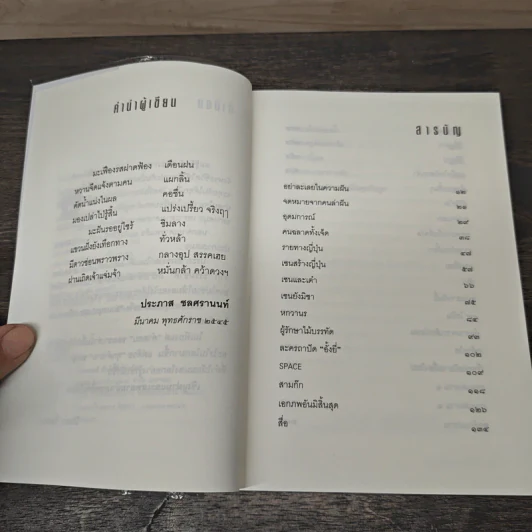 คำนำผู้เขียน
มะเฟืองรสฝาดเฟื่อง เดือนฝน
หวานจืดแจ้งตามคน แผกลิ้น
ดัดน้ำแบ่งในผล คอขื่น
มองเปล่าไป่รู้สิ้น แปร่งเปรี้ยว จริงฤๅ
มะเฝืนรออยู่ไซร้ ชิมลาง
แขวนฝั่งยังเทือกทาง ทั่วหล้า
มีดาวซ่อนพราวพราง กลางฮูป สรรคเฮย
ผ่านเกิดเจ้าแจ่มจ้า หมั่นกล้า คว้าดวงฯ
ประภาส ชลศรานนท์
มีนาคม พุทธศักราช ๒๕๔๕
สารบัญ
อย่าละเลยในความฝัน ๑๒
จดหมายจากคนล่าฝัน ๒๑
อุดมการณ์ ๒๙
คนฉลาดทั้งเจ็ด ๓๘
รายทางญี่ปุ่น ๔๘
เซนสร้างญี่ปุ่น ๕๗
เซนและเต๋า ๖๖
เซนยังมิซา ๗๕
หกวานร ๘๔
ผู้รักษาไม้บรรทัด ๙๓
ละครถาปัด "อั้งยี่" ๑๐๒
SPACE ๑๐๙
สามก๊ก ๑๑๘
เอกภพอันมิสิ้นสุด ๑๒๖
สื่อ ๑๓๔